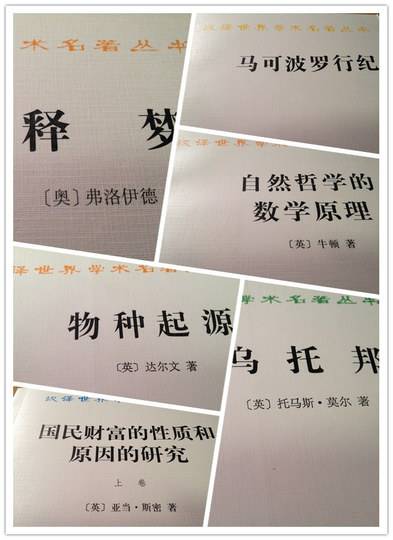 术名著丛书
释梦
〔奥〕弗洛伊德
译世界学术名著丛书
马可波罗行纪
汉译世界学术
自然哲学的
数学原理
〔英〕牛顿 著
译世界学术名著
物种起源
〔英〕达尔文 著
学术名著丛书
乌托邦
〔英〕托马斯·莫尔 著
汉译世界学术名
国民财富的性质和
原因的研究
上 卷
〔英〕亚当·斯密 著